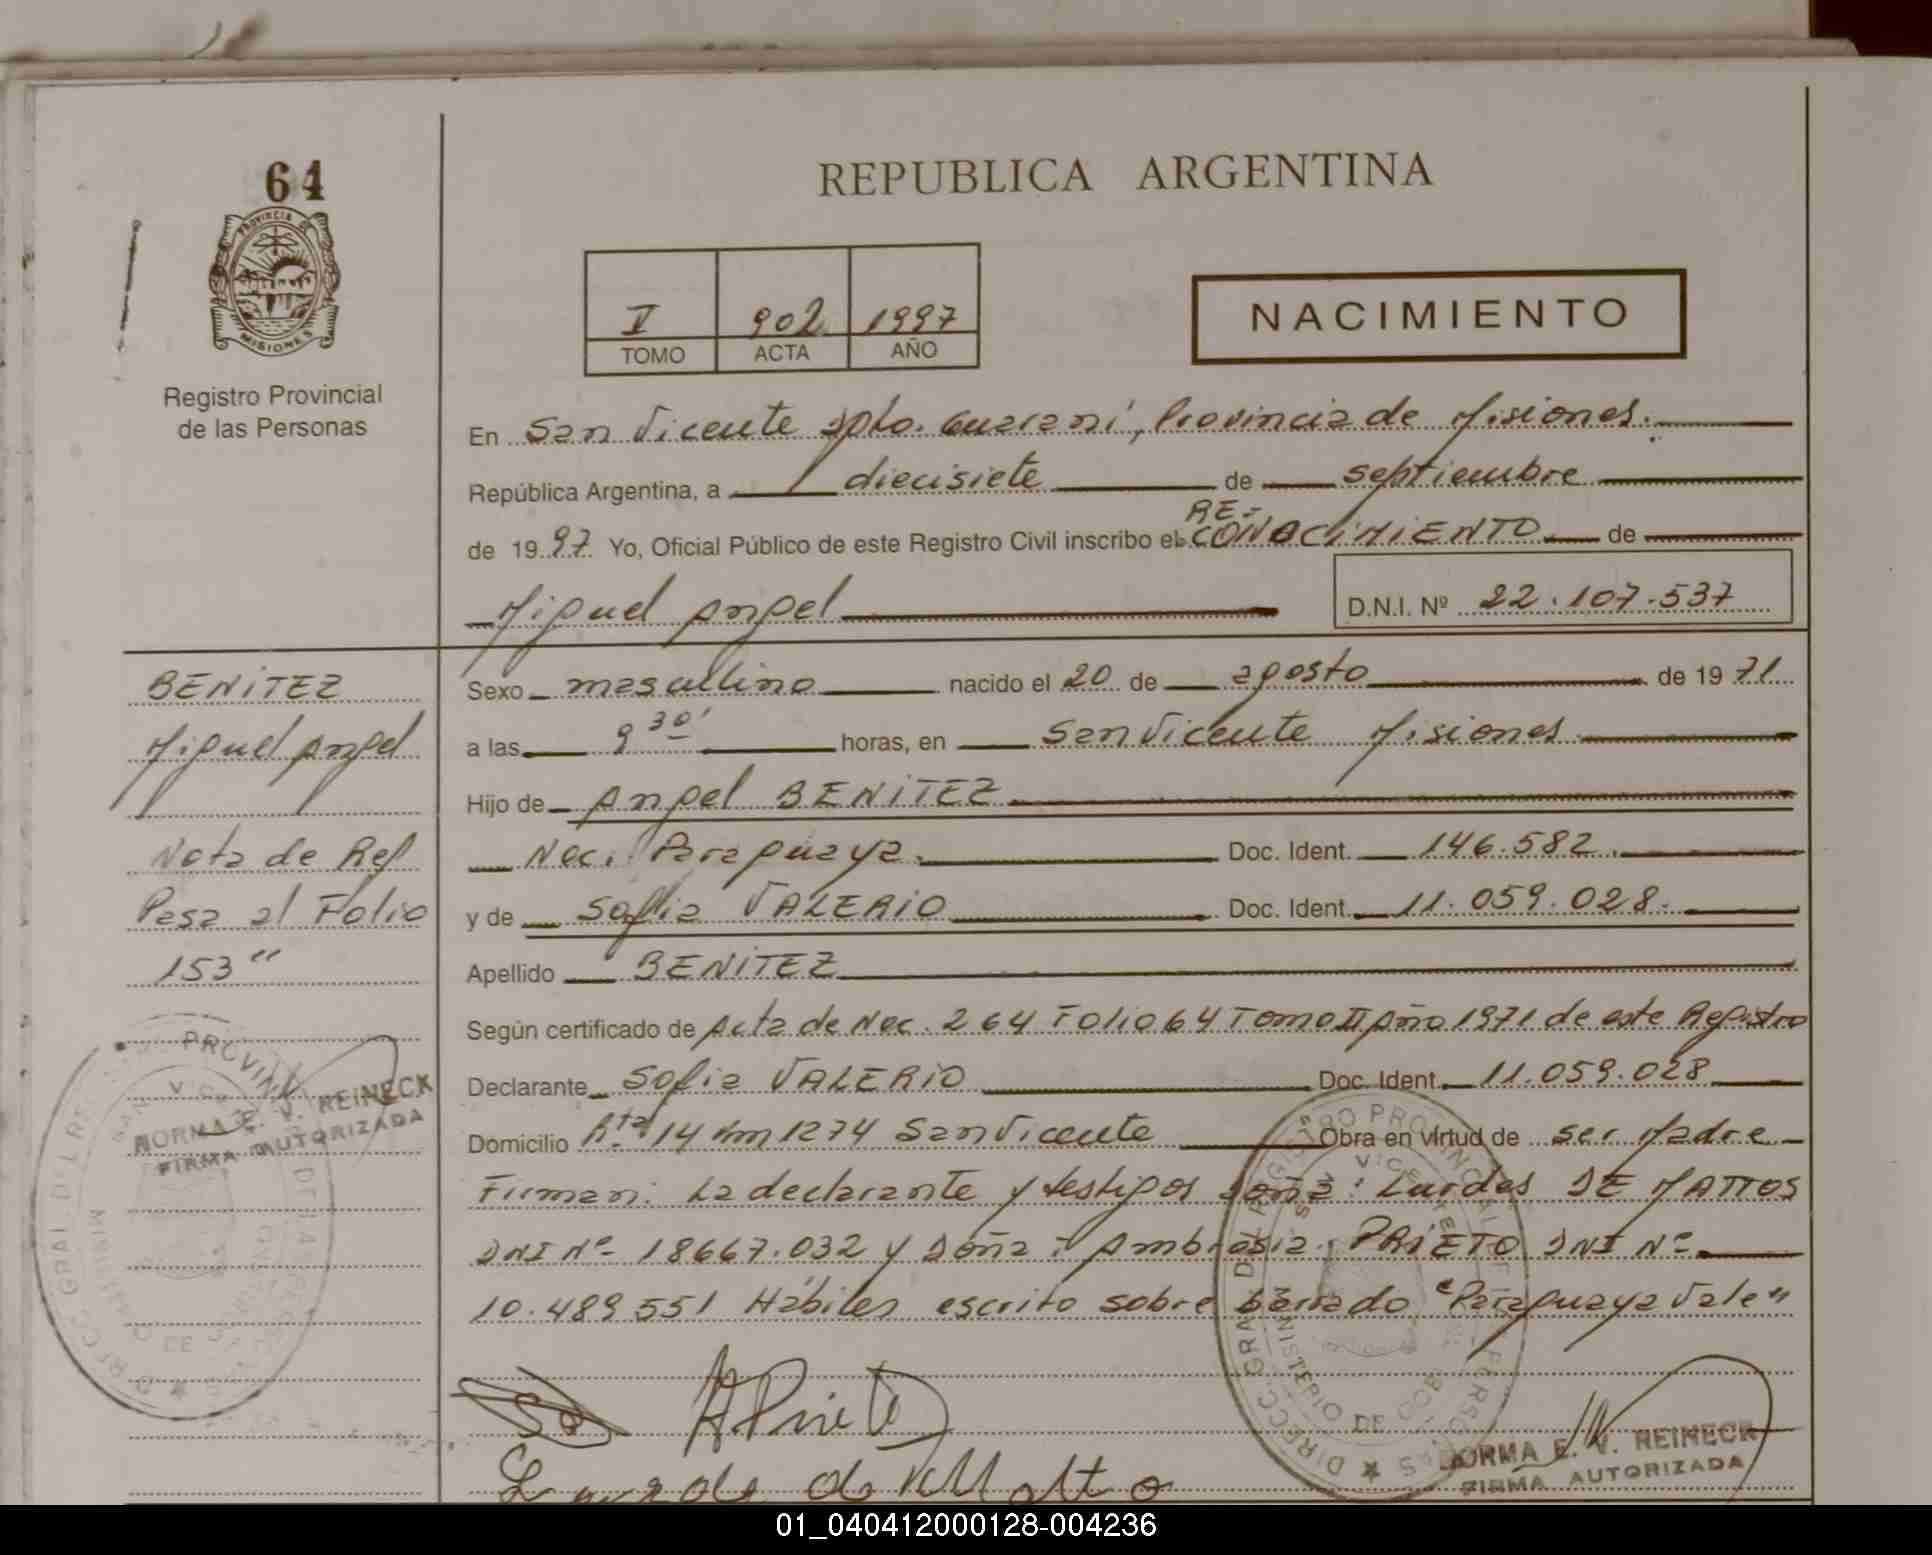 64
PROVINCIA DE
MISIONES
Registro Provincial
de las Personas
REPUBLICA ARGENTINA
V 902 1997
TOMO ACTA AÑO
NACIMIENTO
En San Vicente Dpto. Guaraní, Provincia de Misiones.
República Argentina, a diecisiete de septiembre
de 1997 Yo, Oficial Público de este Registro Civil inscribo el RE-CONOCIMIENTO de
Miguel Angel D.N.I. Nº 22.107.537
BENITEZ
Miguel Angel
Nota de Ref
Pasa al Folio
153"
Sexo masculino nacido el 20 de agosto de 1971
a las 9 30' horas, en San Vicente Misiones
Hijo de Angel BENITEZ
Nac. Paraguaya. Doc. Ident. 146.582.
y de Sofia VALERIO Doc. Ident. 11.059.028.
Apellido BENITEZ
Según certificado de Acta de Nac. 264 Folio 64 Tomo II Año 1971 de este Registro
Declarante Sofia VALERIO Doc. Ident. 11.059.028
Domicilio Rta. 14 Km 1274 San Vicente Obra en virtud de ser Madre
Firman: La declarante y testigos Doña: Lurdes DE MATTOS
DNI Nº 18667.032 y Doña: Ambrosia PRIETO DNI Nº
10.489551 Hábiles escrito sobre barrado "Paraguaya Vale"
NORMA E. V. REINECK
FIRMA AUTORIZADA
A Prieto
NORMA E. V. REINECK
FIRMA AUTORIZADA
01_040412000128-004236